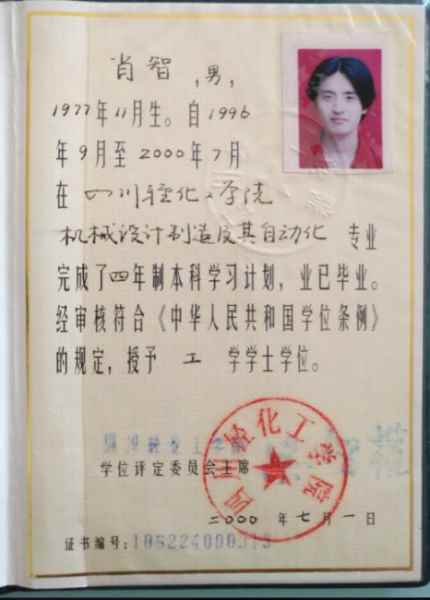 肖智,男,
1977年11月生。自1996
年9月至2000年7月
在 四川轻化工学院
机械设计制造及其自动化 专业
完成了四年制本科学习计划,业已毕业。
经审核符合《中华人民共和国学位条例》
的规定,授予 工 学学士学位。
四川轻化工学院
学位评定委员会主席
二000年七月一日
证书编号: